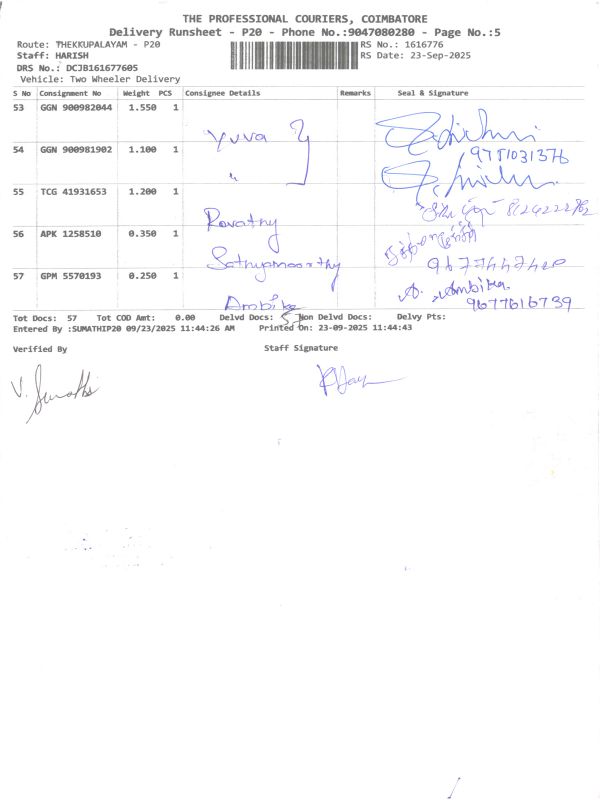 THE PROFESSIONAL COURIERS, COIMBATORE
Delivery Runsheet - P20 - Phone No.:9047080280 - Page No.:5
Route: THEKKUPALAYAM - P20 RS No.: 1616776
Staff: HARISH RS Date: 23-Sep-2025
DRS No.: DCJB161677605
Vehicle: Two Wheeler Delivery
S No Consignment No Weight PCS Consignee Details Remarks Seal & Signature
53 GGN 900982044 1.550 1
Yuva
9751031376
54 GGN 900981902 1.100 1
"
55 TCG 41931653 1.200 1
Revathy
56 APK 1258510 0.350 1
Sathyamoorthy
9677447420
57 GPM 5570193 0.250 1
Ambika A. Ambika.
9677616739
Tot Docs: 57 Tot COD Amt: 0.00 Delvd Docs: 57 Non Delvd Docs: Delvy Pts:
Entered By :SUMATHIP20 09/23/2025 11:44:26 AM Printed On: 23-09-2025 11:44:43
Verified By Staff Signature
V. Sumathi